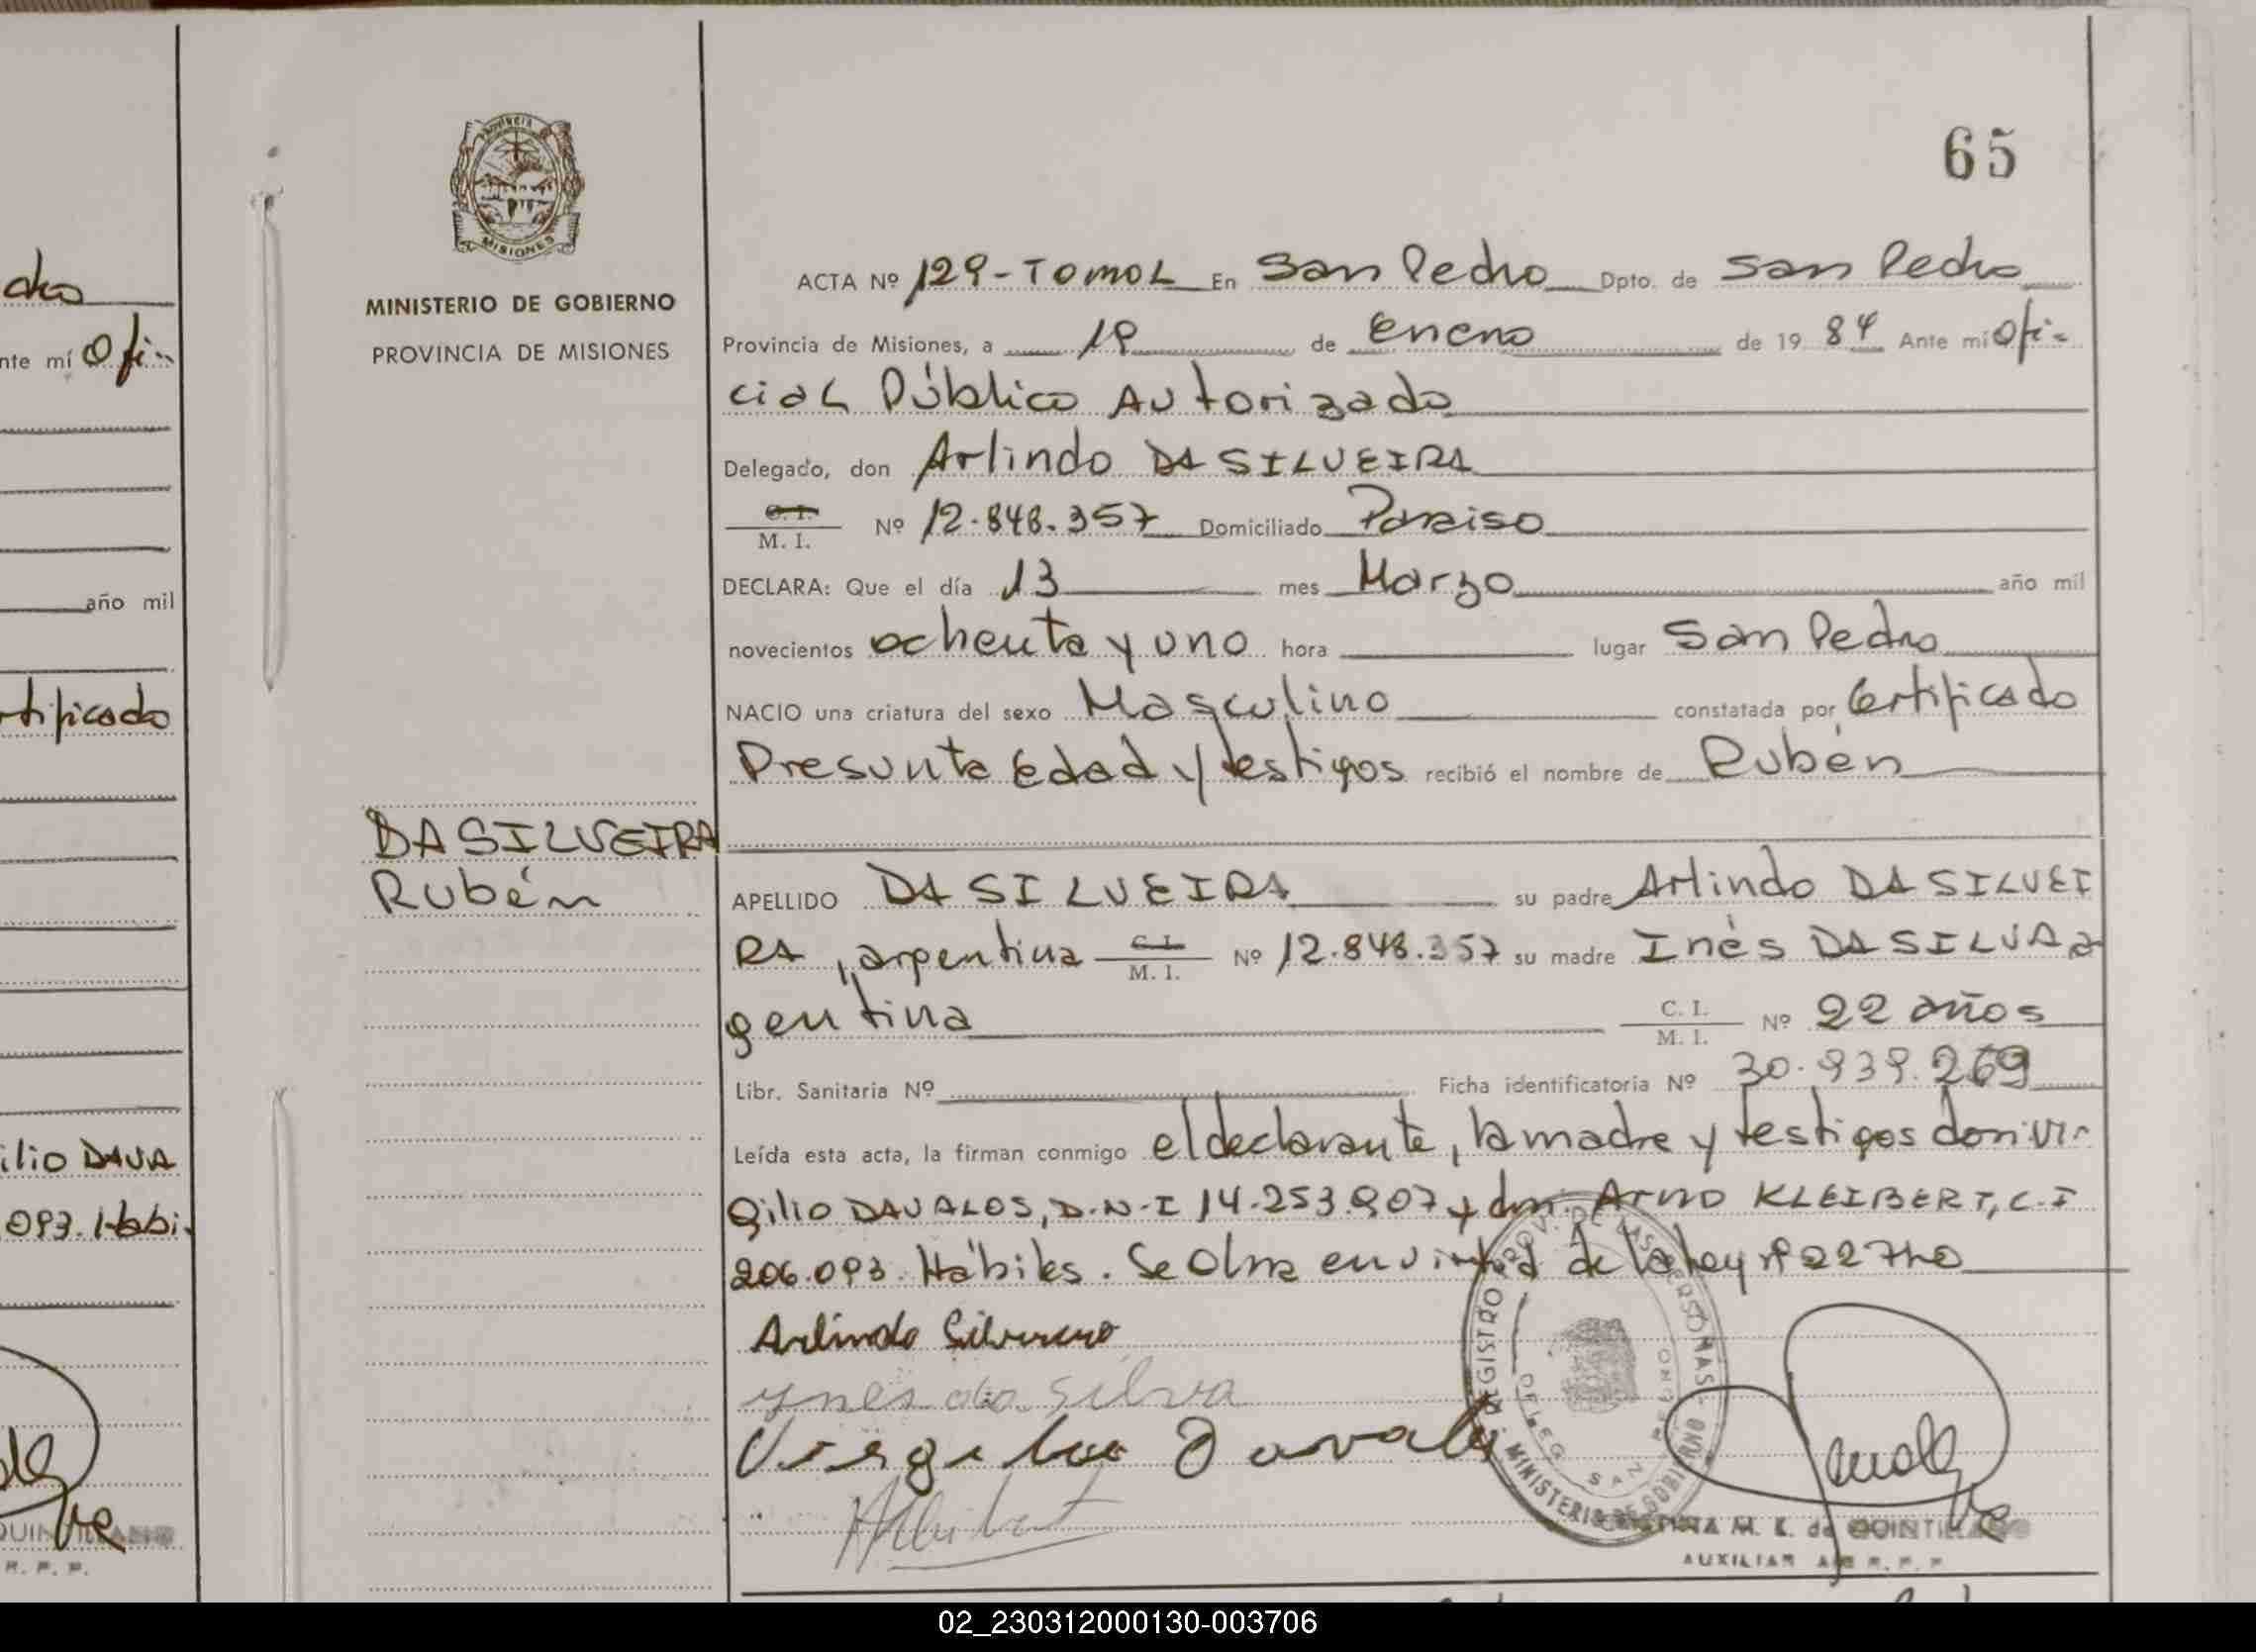 dro
nte mí Ofi-
año mil
rtificado
ilio DAVA
093. Habi-
R. P. P.
PROVINCIA
MISIONES
MINISTERIO DE GOBIERNO
PROVINCIA DE MISIONES
DA SILVEIRA
Rubén
65
ACTA Nº 129-TOMO L En San Pedro Dpto. de San Pedro
Provincia de Misiones, a 19 de enero de 1984 Ante mí Ofi-
cial Público Autorizado
Delegado, don Arlindo DA SILVEIRA
C. I. M. I. Nº 12.848.357 Domiciliado Paraiso
DECLARA: Que el día 13 mes Marzo año mil
novecientos ochenta y uno hora lugar San Pedro
NACIO una criatura del sexo Masculino constatada por Certificado
Presunta Edad y testigos recibió el nombre de Rubén
APELLIDO DA SILVEIRA su padre Arlindo DA SILVEI
RA, argentina C. I. M. I. Nº 12.848.357 su madre Inés DA SILVA a
gentina C. I. M. I. Nº 22 años
Libr. Sanitaria Nº Ficha identificatoria Nº 30.939.269
Leída esta acta, la firman conmigo el declarante, la madre y testigos don Vir-
gilio DAVALOS, D.N.I 14.253.907 y don Arno KLEIBERT, C.I
206.093. Hábiles. Se Obra en virtud de la Ley nº 22740
Arlindo Silveira
ynes da Silva
Virgilio Davalos
REGISTRO PROV. DE LAS PERSONAS
DELEG. SAN PEDRO
MINISTERIO DE GOBIERNO
M. K. de QUINTILIANO
AUXILIAR R. P. P.
02_230312000130-003706